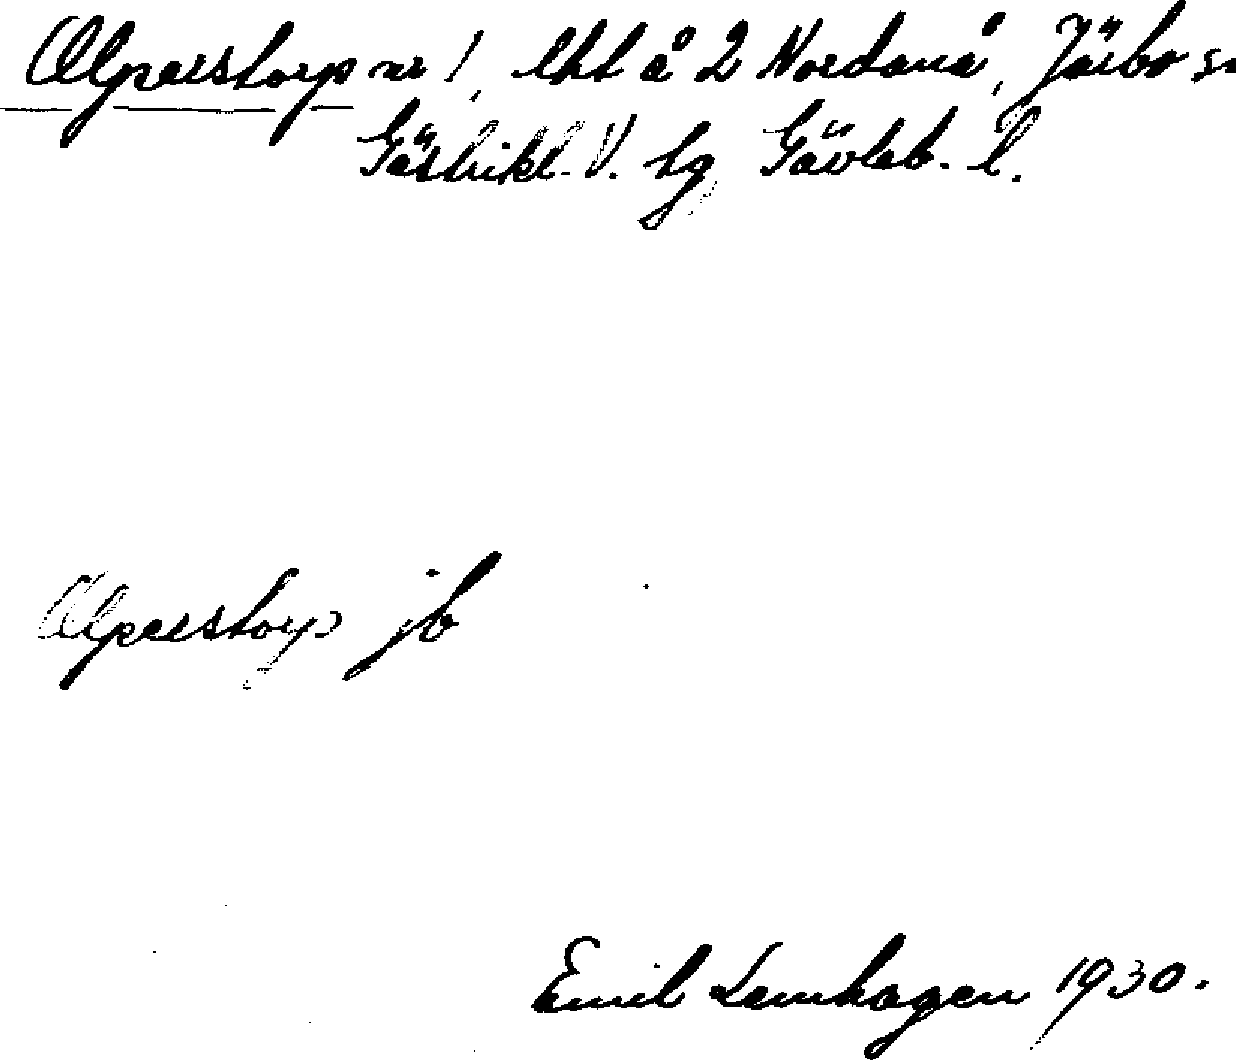 Olperstorp nr 1, lht å 2 Nordanå, Järbo sn
Gästrikl. V. tg, Gävleb. l.
Olperstorp jb
Emil Lemhagen 1930.